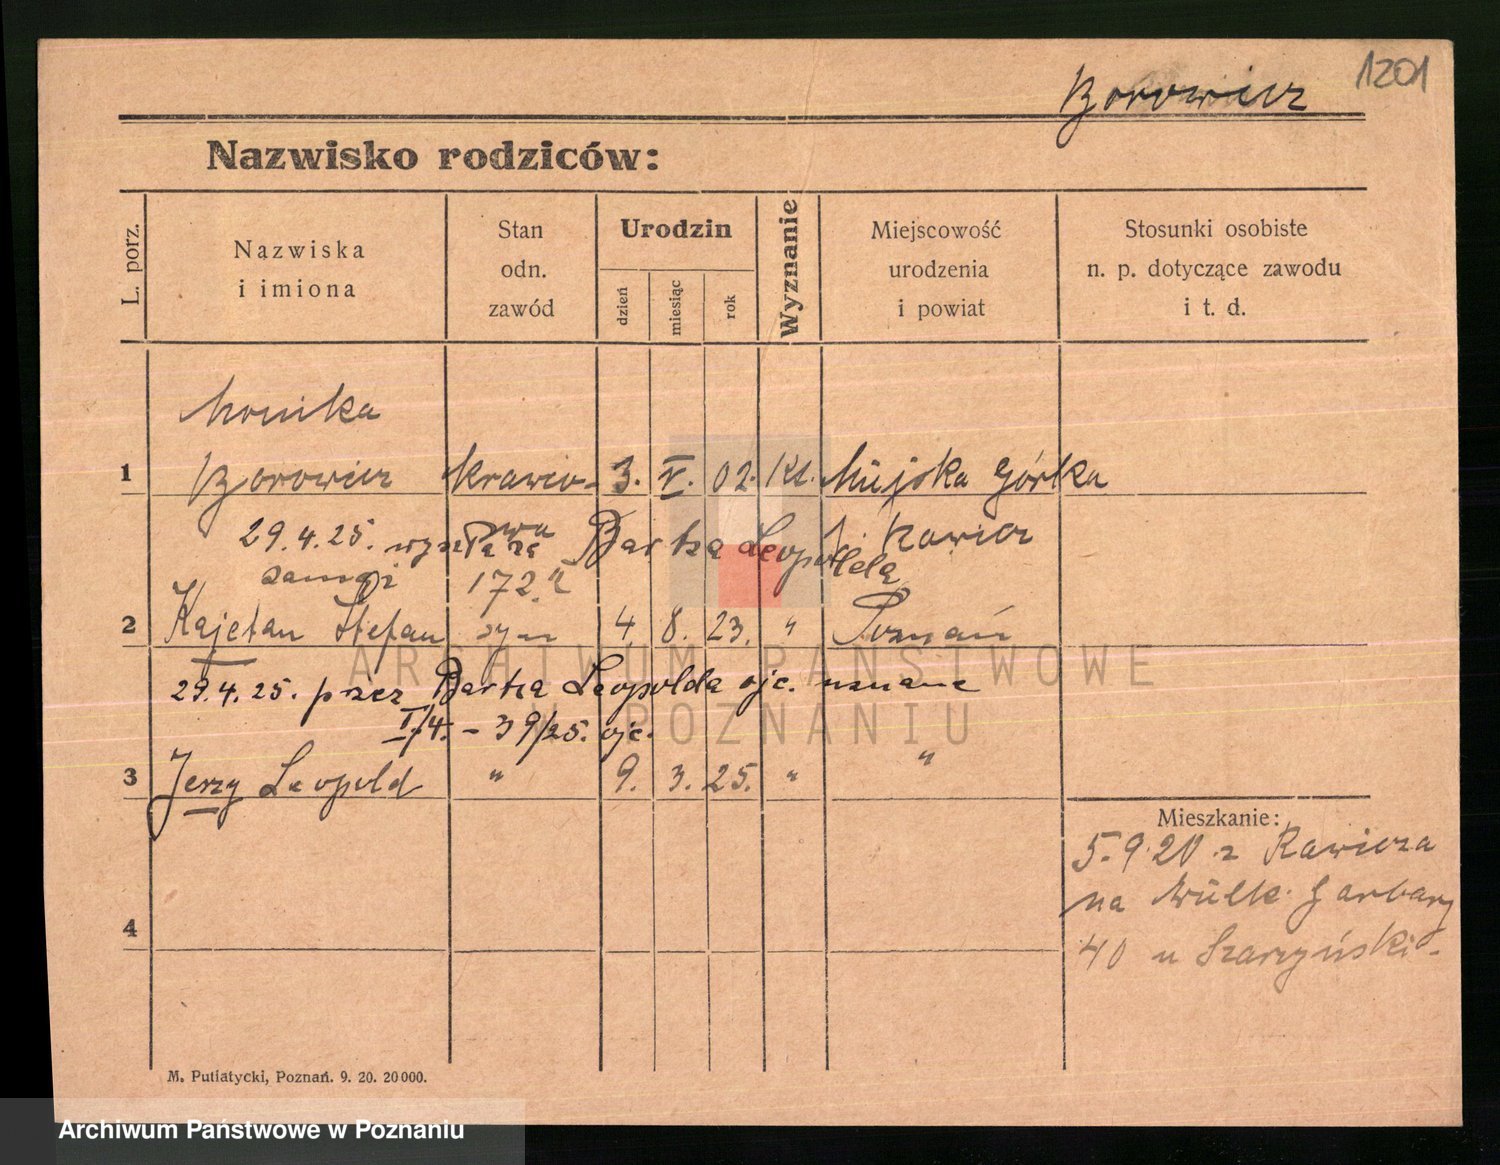 1201
Borowicz
Nazwisko rodziców:
L. porz.
Nazwiska
i imiona
Stan
odn.
zawód
Urodzin
dzień
miesiąc
rok
Wyznanie
Miejscowość
urodzenia
i powiat
Stosunki osobiste
n. p. dotyczące zawodu
i t. d.
Monika
1 Borowicz krawco- 3. V. 02. Kt. Miejska Górka
wa Rawicz
29.4.25. wyszła za Bartza Leopolda
172.
2 Kajetan Stefan syn 4. 8. 23. " Poznań
29.4.25. przez Bartza Leopolda ojc. uznane
I/4. - 39/25. ojc.
3 Jerzy Leopold " 9. 3. 25. " "
4
Mieszkanie:
5.9.20 z Rawicza
na Wielk. Garbary
40 u Szarzyński.
M. Putiatycki, Poznań. 9. 20. 20 000.
ARCHIWUM PAŃSTWOWE
W POZNANIU
Archiwum Państwowe w Poznaniu